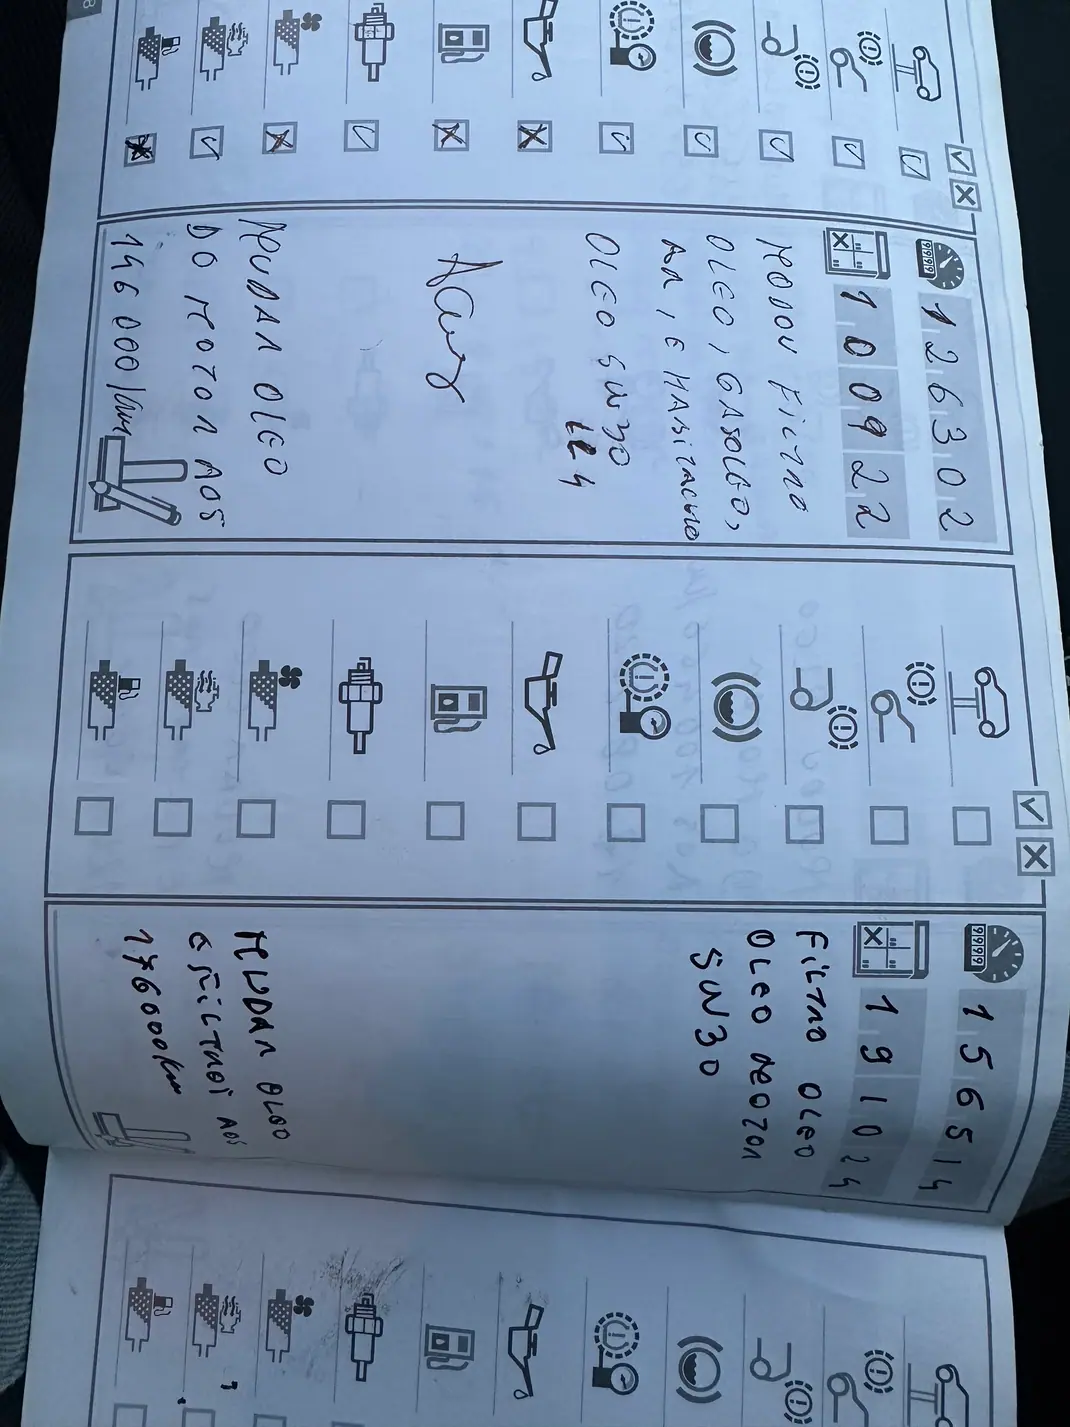 126302
100922
MUDOU FILTRO
OLEO, GASOLEO,
AR, E HABITACULO
OLEO 5W30
MUDAR OLEO
DO MOTOR AOS
146000/km
156514
191024
FILTRO OLEO
OLEO MOTOR
5W30
MUDAR OLEO
E FILTROS AOS
176000km
8